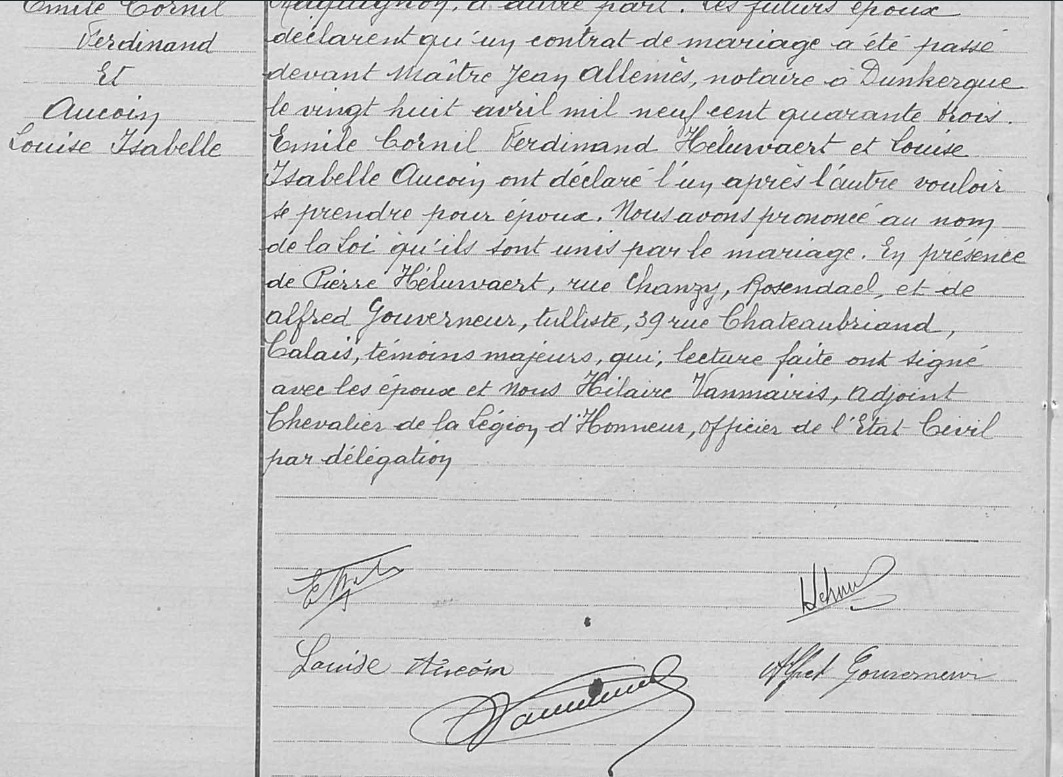 Emile Cornil
Ferdinand
Et
Aucoin
Louise Isabelle
d'autre part. Les futurs époux
déclarent qu'un contrat de mariage a été passé
devant Maître Jean Allemès, notaire à Dunkerque
le vingt huit avril mil neuf cent quarante trois.
Emile Cornil Ferdinand Hélurvaert et Louise
Isabelle Aucoin ont déclaré l'un après l'autre vouloir
se prendre pour époux. Nous avons prononcé au nom
de la Loi qu'ils sont unis par le mariage. En présence
de Pierre Hélurvaert, rue Chanzy, Rosendael, et de
Alfred Gouverneur, tulliste, 39 rue Chateaubriand,
Calais, témoins majeurs, qui, lecture faite ont signé
avec les époux et Nous Hilaire Vanmairis, Adjoint
Chevalier de la Légion d'Honneur, officier de l'Etat Civil
par délégation
Louise Aucoin
Alfred Gouverneur